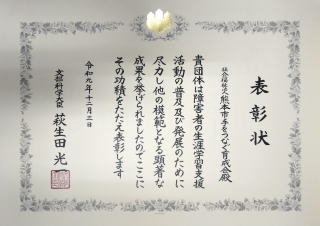 表彰状
社会福祉法人熊本市手をつなぐ育成会殿
貴団体は障害者の生涯学習支援
活動の普及及び発展のために
尽力し他の模範となる顕著な
成果を挙げられましたのでここに
その功績をたたえ表彰します
十二月三日
文部科学大臣 萩生田光一